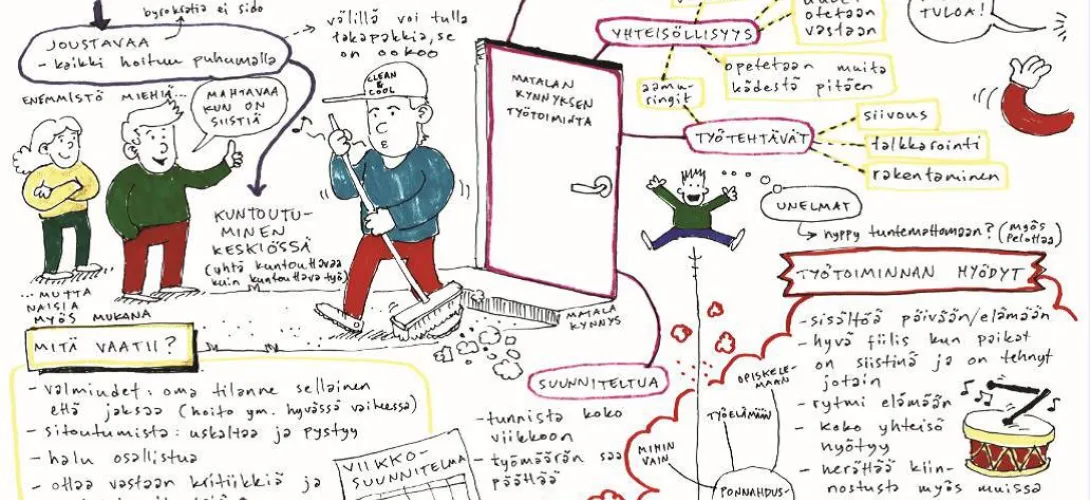 byrokratia ei sido
JOUSTAVAA
- kaikki hoituu puhumalla
välillä voi tulla
takapakkia, se
on ookoo
ENEMMISTÖ MIEHIÄ...
MAHTAVAA
KUN ON
SIISTIÄ
CLEAN
&
COOL
KUNTOUTU-
MINEN
KESKIÖSSÄ
(yhtä kuntouttavaa
kuin kuntouttava työ)
... MUTTA
NAISIA
MYÖS MUKANA
MATALAN
KYNNYKSEN
TYÖTOIMINTA
MATALA
KYNNYS
YHTEISÖLLISYYS
otetaan
vastaan
opetetaan muita
kädestä pitäen
aamu-
ringit
TYÖTEHTÄVÄT
siivous
talkkarointi
rakentaminen
TULOA!
UNELMAT
hyppy tuntemattomaan? (myös
pelottaa)
MITÄ VAATII?
- valmiudet: oma tilanne sellainen
että jaksaa (hoito ym. hyvässä vaiheessa)
- sitoutumista: uskaltaa ja pystyy
- halu osallistua
- ottaa vastaan kritiikkiä ja
VIIKKO-
SUUNNITELMA
SUUNNITELTUA
- tunnista koko
viikkoon
- työmäärän saa
päättää
OPISKELE-
MAAN
TYÖELÄMÄÄN
MIHIN
VAIN
PONNAHDUS-
TYÖTOIMINNAN HYÖDYT
- sisältöä päivään/elämään
- hyvä fiilis kun paikat
on siistinä ja on tehnyt
jotain
- rytmi elämään
- koko yhteisö
hyötyy
- herättää kiin-
nostusta myös muissa